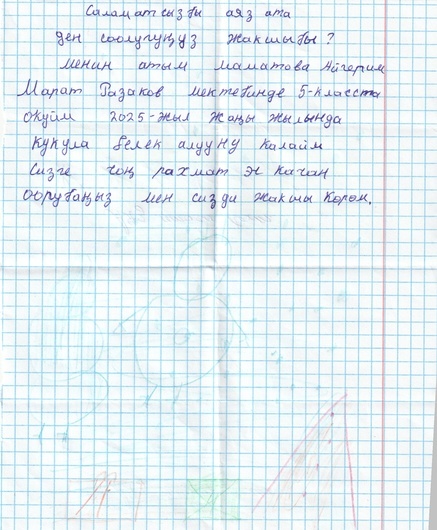 Саламатсызбы аяз ата
ден соолугуңуз жакшыбы?
менин атым маматова Айгерим
Марат Разаков мектебинде 5-класста
окуйм 2025-жыл жаңы жылында
кукула белек алууну калайм
сизге чоң рахмат эч качан
оорубаңыз мен сизди жакшы көрөм.